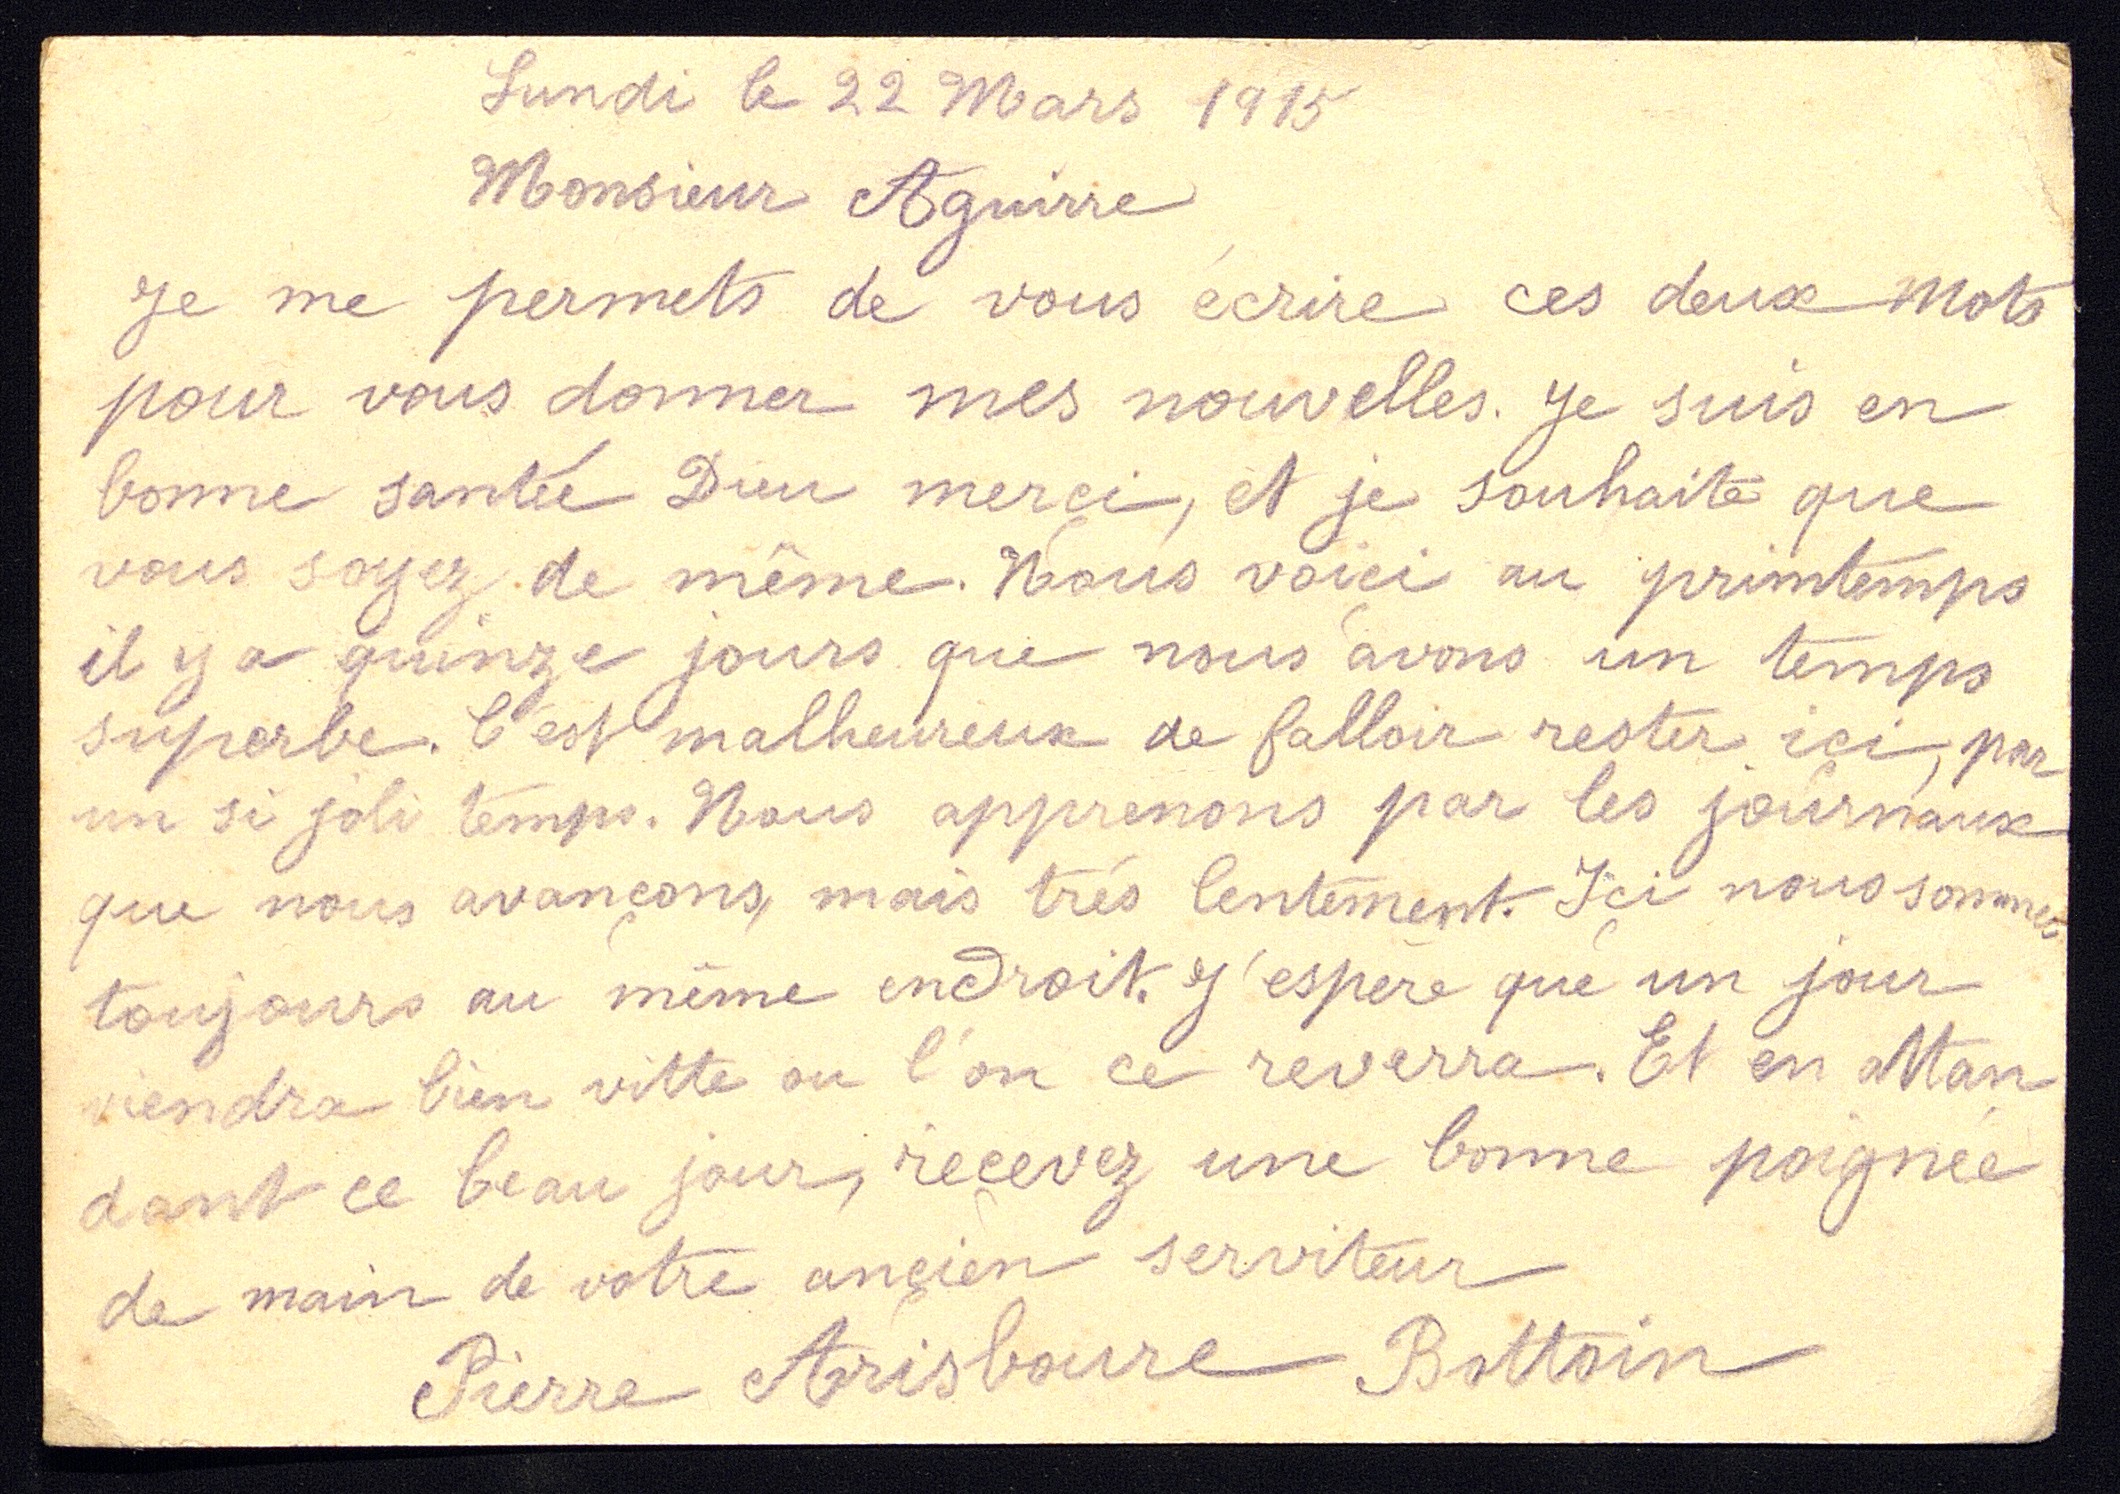 Lundi le 22 Mars 1915
Monsieur Aguirre
Je me permets de vous écrire ces deux mots
pour vous donner mes nouvelles. Je suis en
bonne santée Dieu merci, et je souhaite que
vous soyez de même. Nous voici au printemps
il y a quinze jours que nous avons un temps
superbe. C'est malheureux de falloir rester ici, par
un si joli temps. Nous apprenons par les journaux
que nous avancons, mais trés lentement. Ici nous sommes
toujours au même endroit. J'espère que un jour
viendra bien vitte ou l'on ce reverra. Et en attan
dant ce beau jour, recevez une bonne poignée
de main de votre ancien serviteur
Pierre Arisboure Bottoin